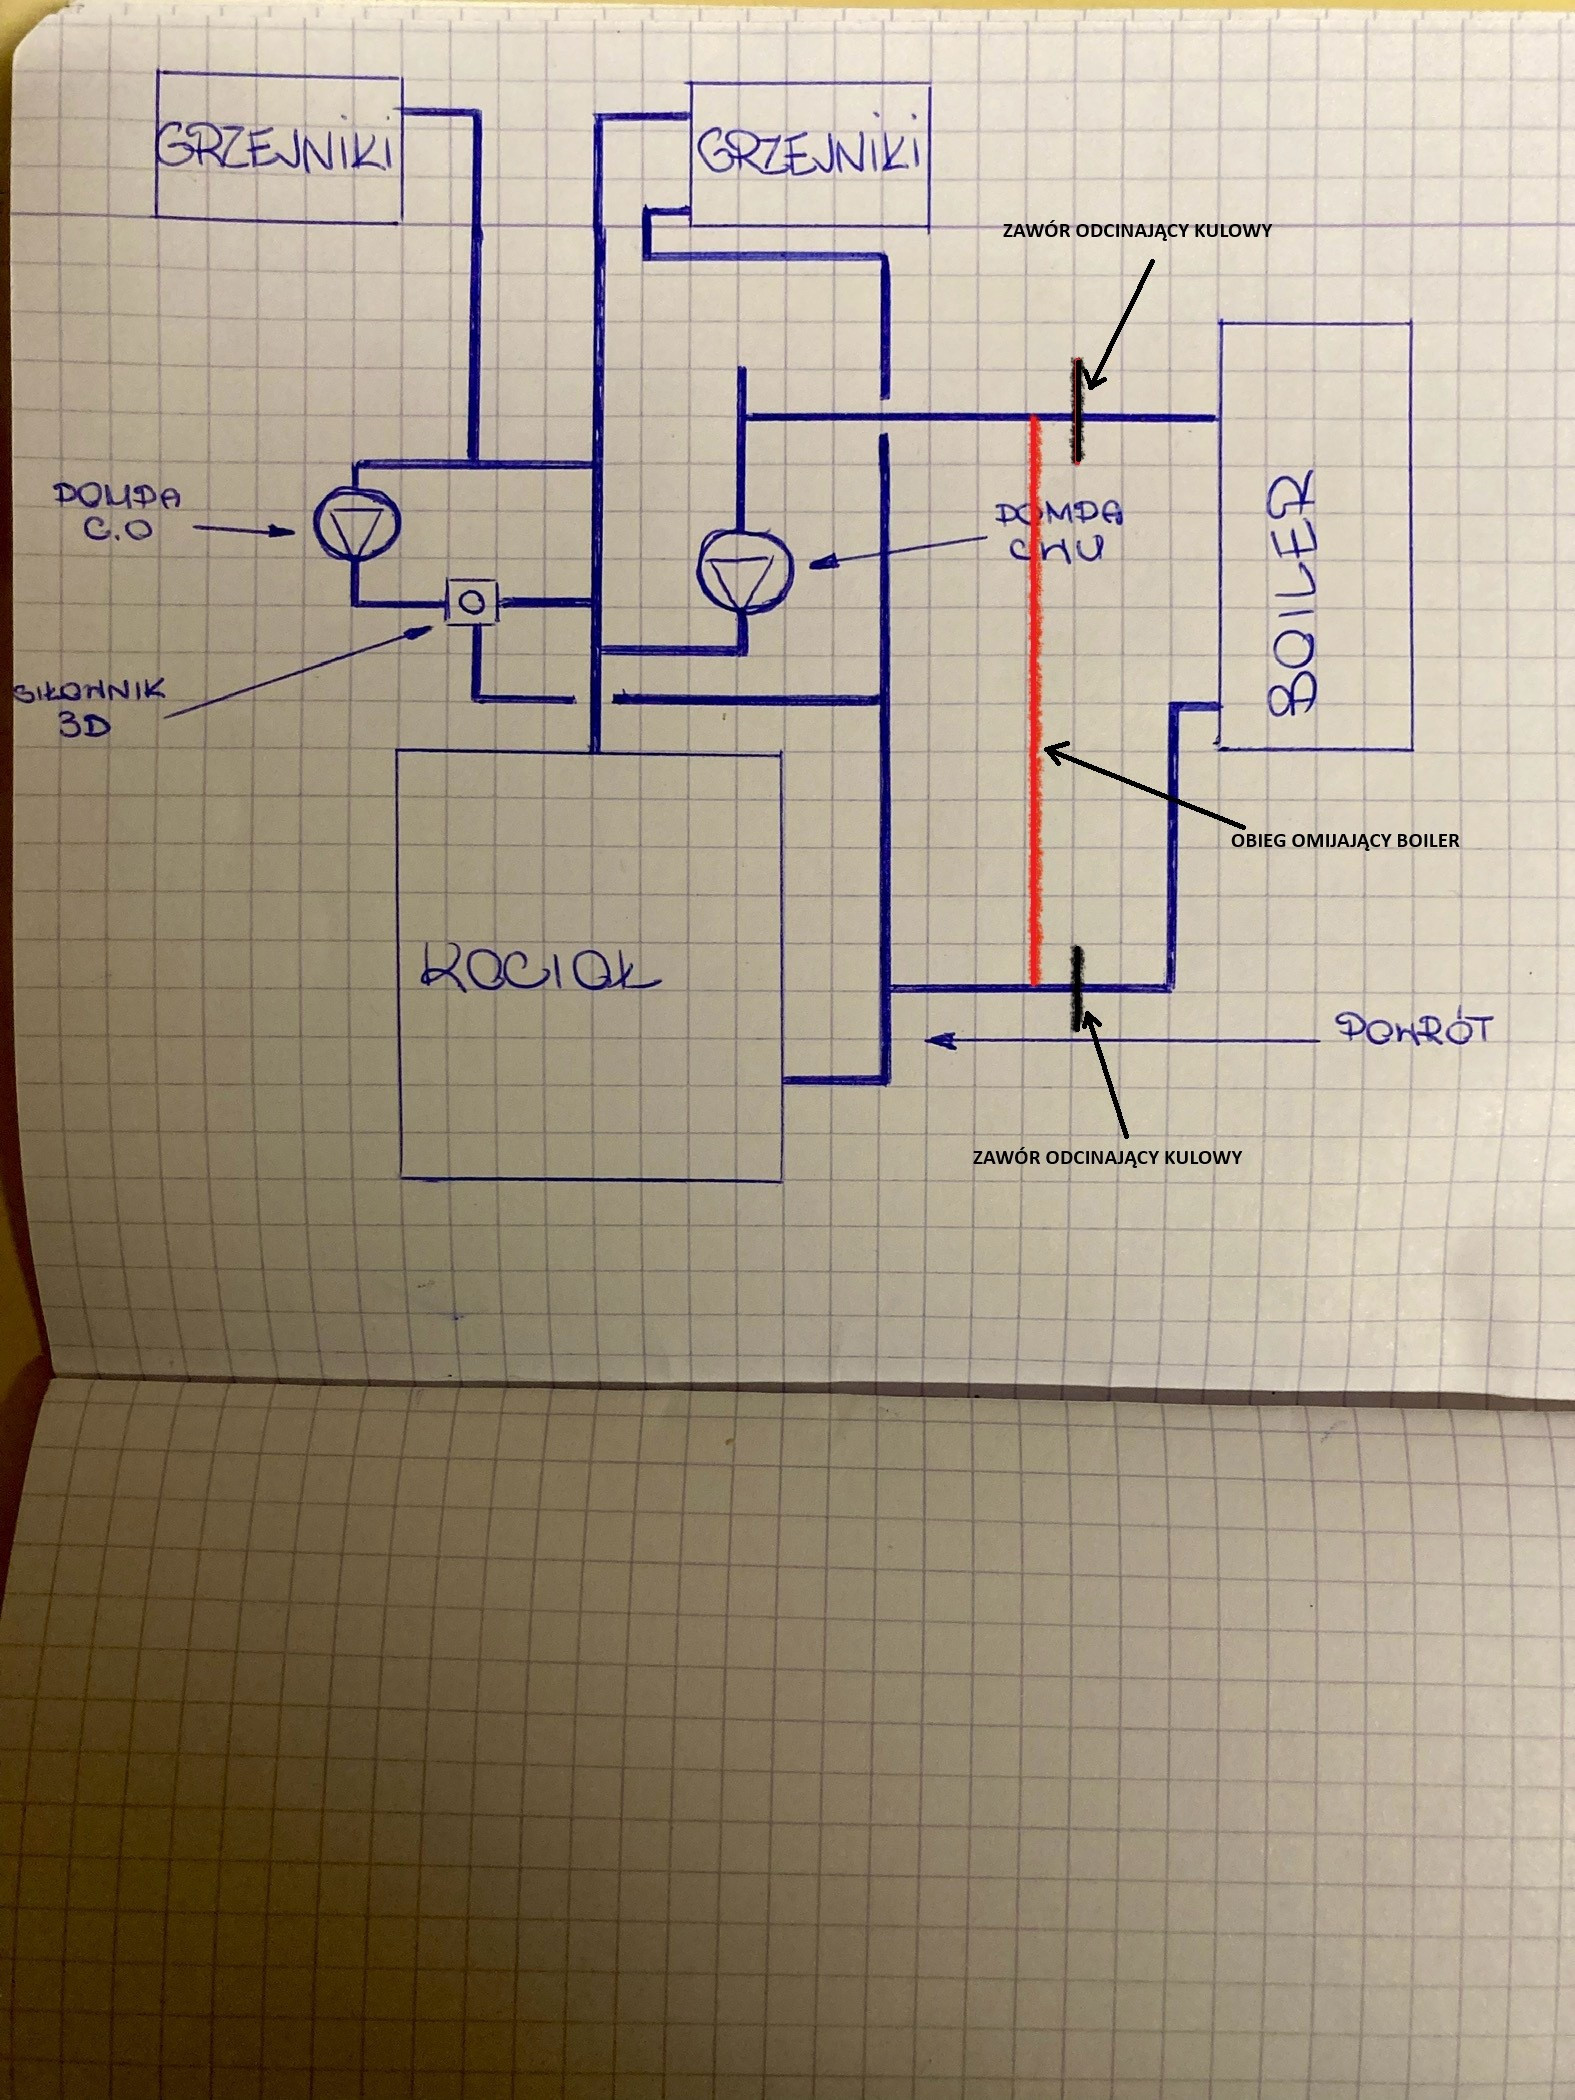 GRZEJNIKI
GRZEJNIKI
ZAWÓR ODCINAJĄCY KULOWY
POMPA
C.O
POMPA
CWU
BOILER
SIŁOWNIK
3D
OBIEG OMIJAJĄCY BOILER
KOCIOŁ
POWRÓT
ZAWÓR ODCINAJĄCY KULOWY